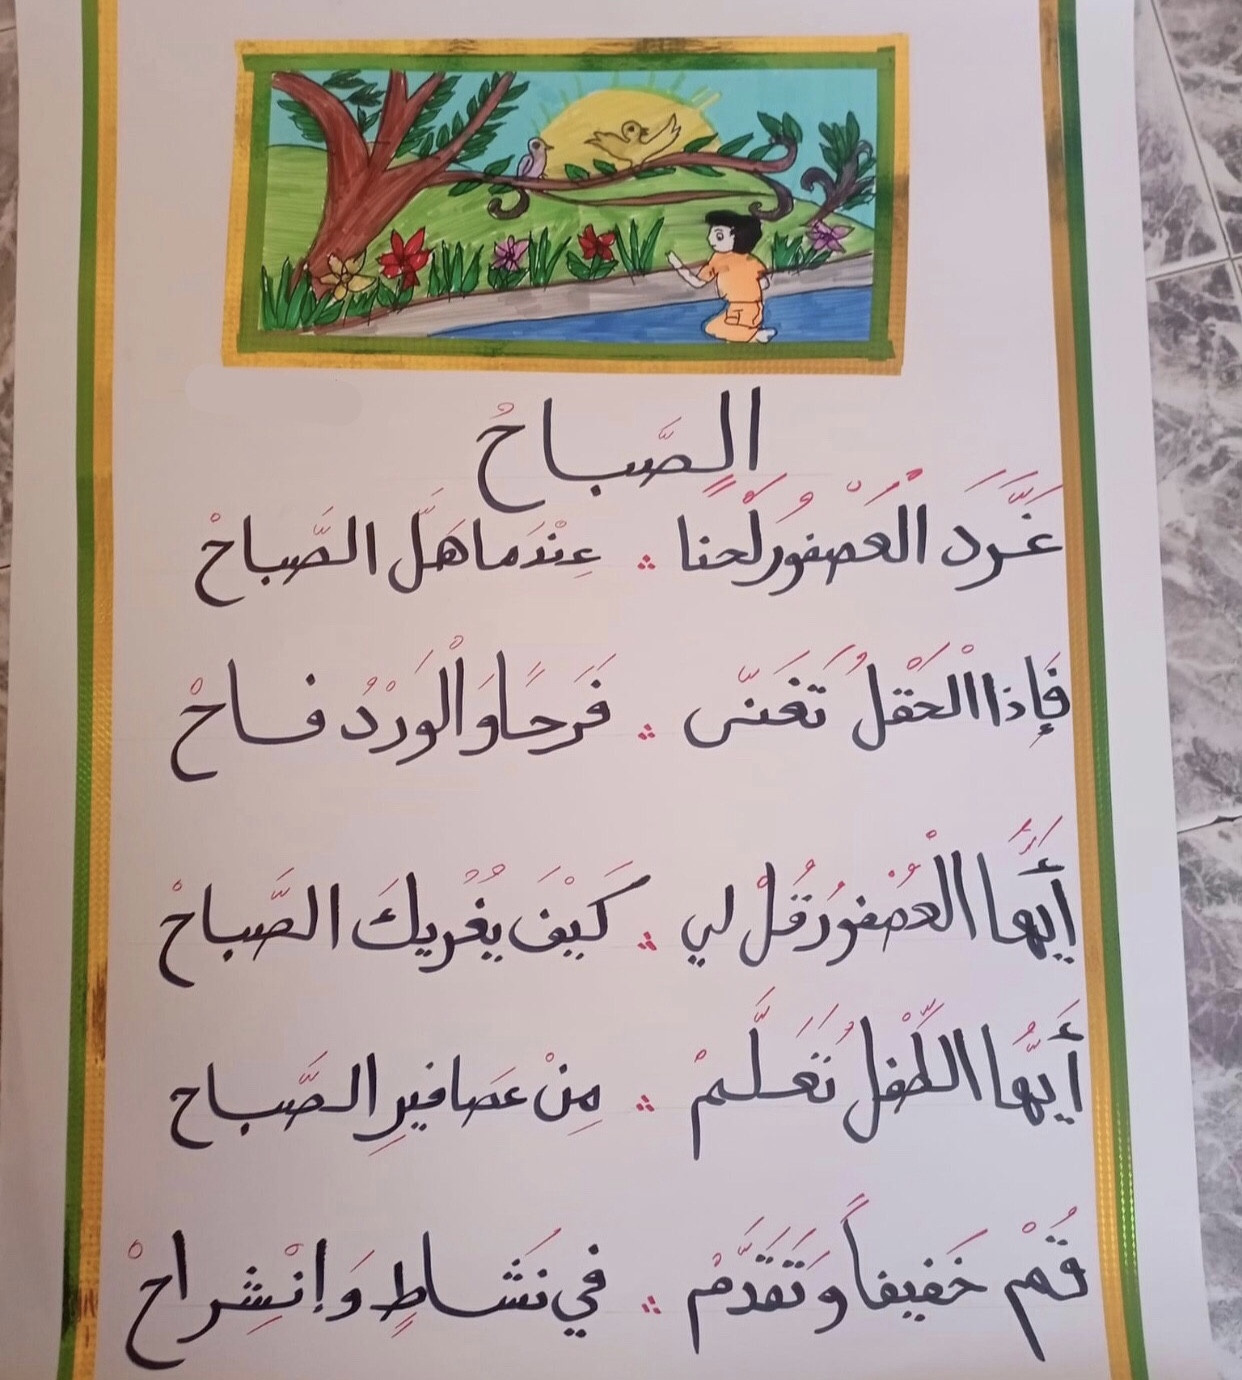 الصَّباحْ
غَرَّدَ الْعُصْفُورُ لَحْنًا ⁘ عِنْدَما هَلَّ الصَّباحْ
فَإِذا الْحَقْلُ تَغَنّى ⁘ فَرَحًا وَالْوَرْدُ فاحْ
أَيُّها الْعُصْفُورُ قُلْ لي ⁘ كَيْفَ يُغْريكَ الصَّباحْ
أَيُّها الطِّفْلُ تَعَلَّمْ ⁘ مِنْ عَصافيرِ الصَّباح
قُمْ خَفيفاً وَتَقَدَّمْ ⁘ في نَشاطٍ وَاِنْشِراحْ